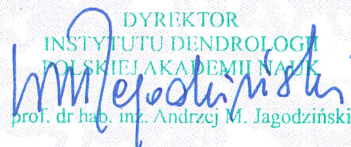 DYREKTOR
INSTYTUTU DENDROLOGII
POLSKIEJ AKADEMII NAUK
prof. dr hab. inż. Andrzej M. Jagodziński